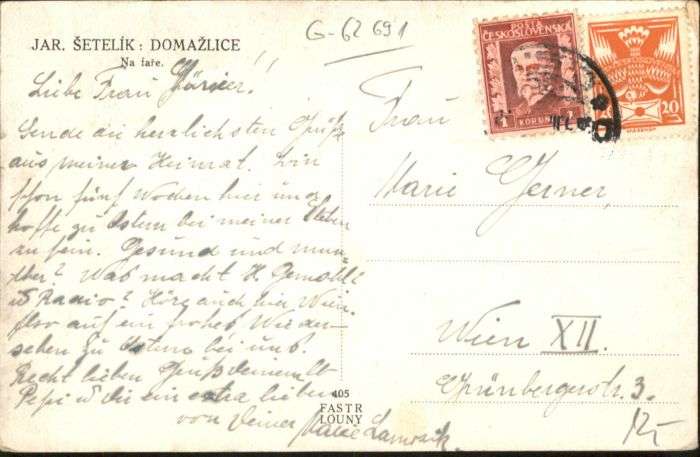 G-62 691
JAR. ŠETELÍK: DOMAŽLICE
Na faře.
POSTA
ČESKOSLOVENSKÁ
1 KORUNA
20
Liebe Frau
Sende die herzlichsten Grüße
aus meiner Heimat. Bin
schon fünf Wochen hier und
hoffe zu Ostern bei meiner
zu sein. Gesund und mun-
ter? Was macht H. Gemahl?
u Radio? Höre auch hier Wien.
Also auf ein frohes Wieder-
sehen zu Ostern bei uns.
Recht lieben Gruß
Pepi u dir ein extra lieben
von Deiner Marie
Frau
Marie Gerner
Wien XII.
3.
405
FASTR
LOUNY
12,-